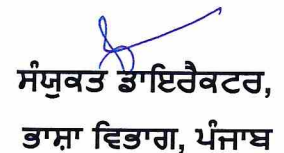 ਸੰਯੁਕਤ ਡਾਇਰੈਕਟਰ,
ਭਾਸ਼ਾ ਵਿਭਾਗ, ਪੰਜਾਬ